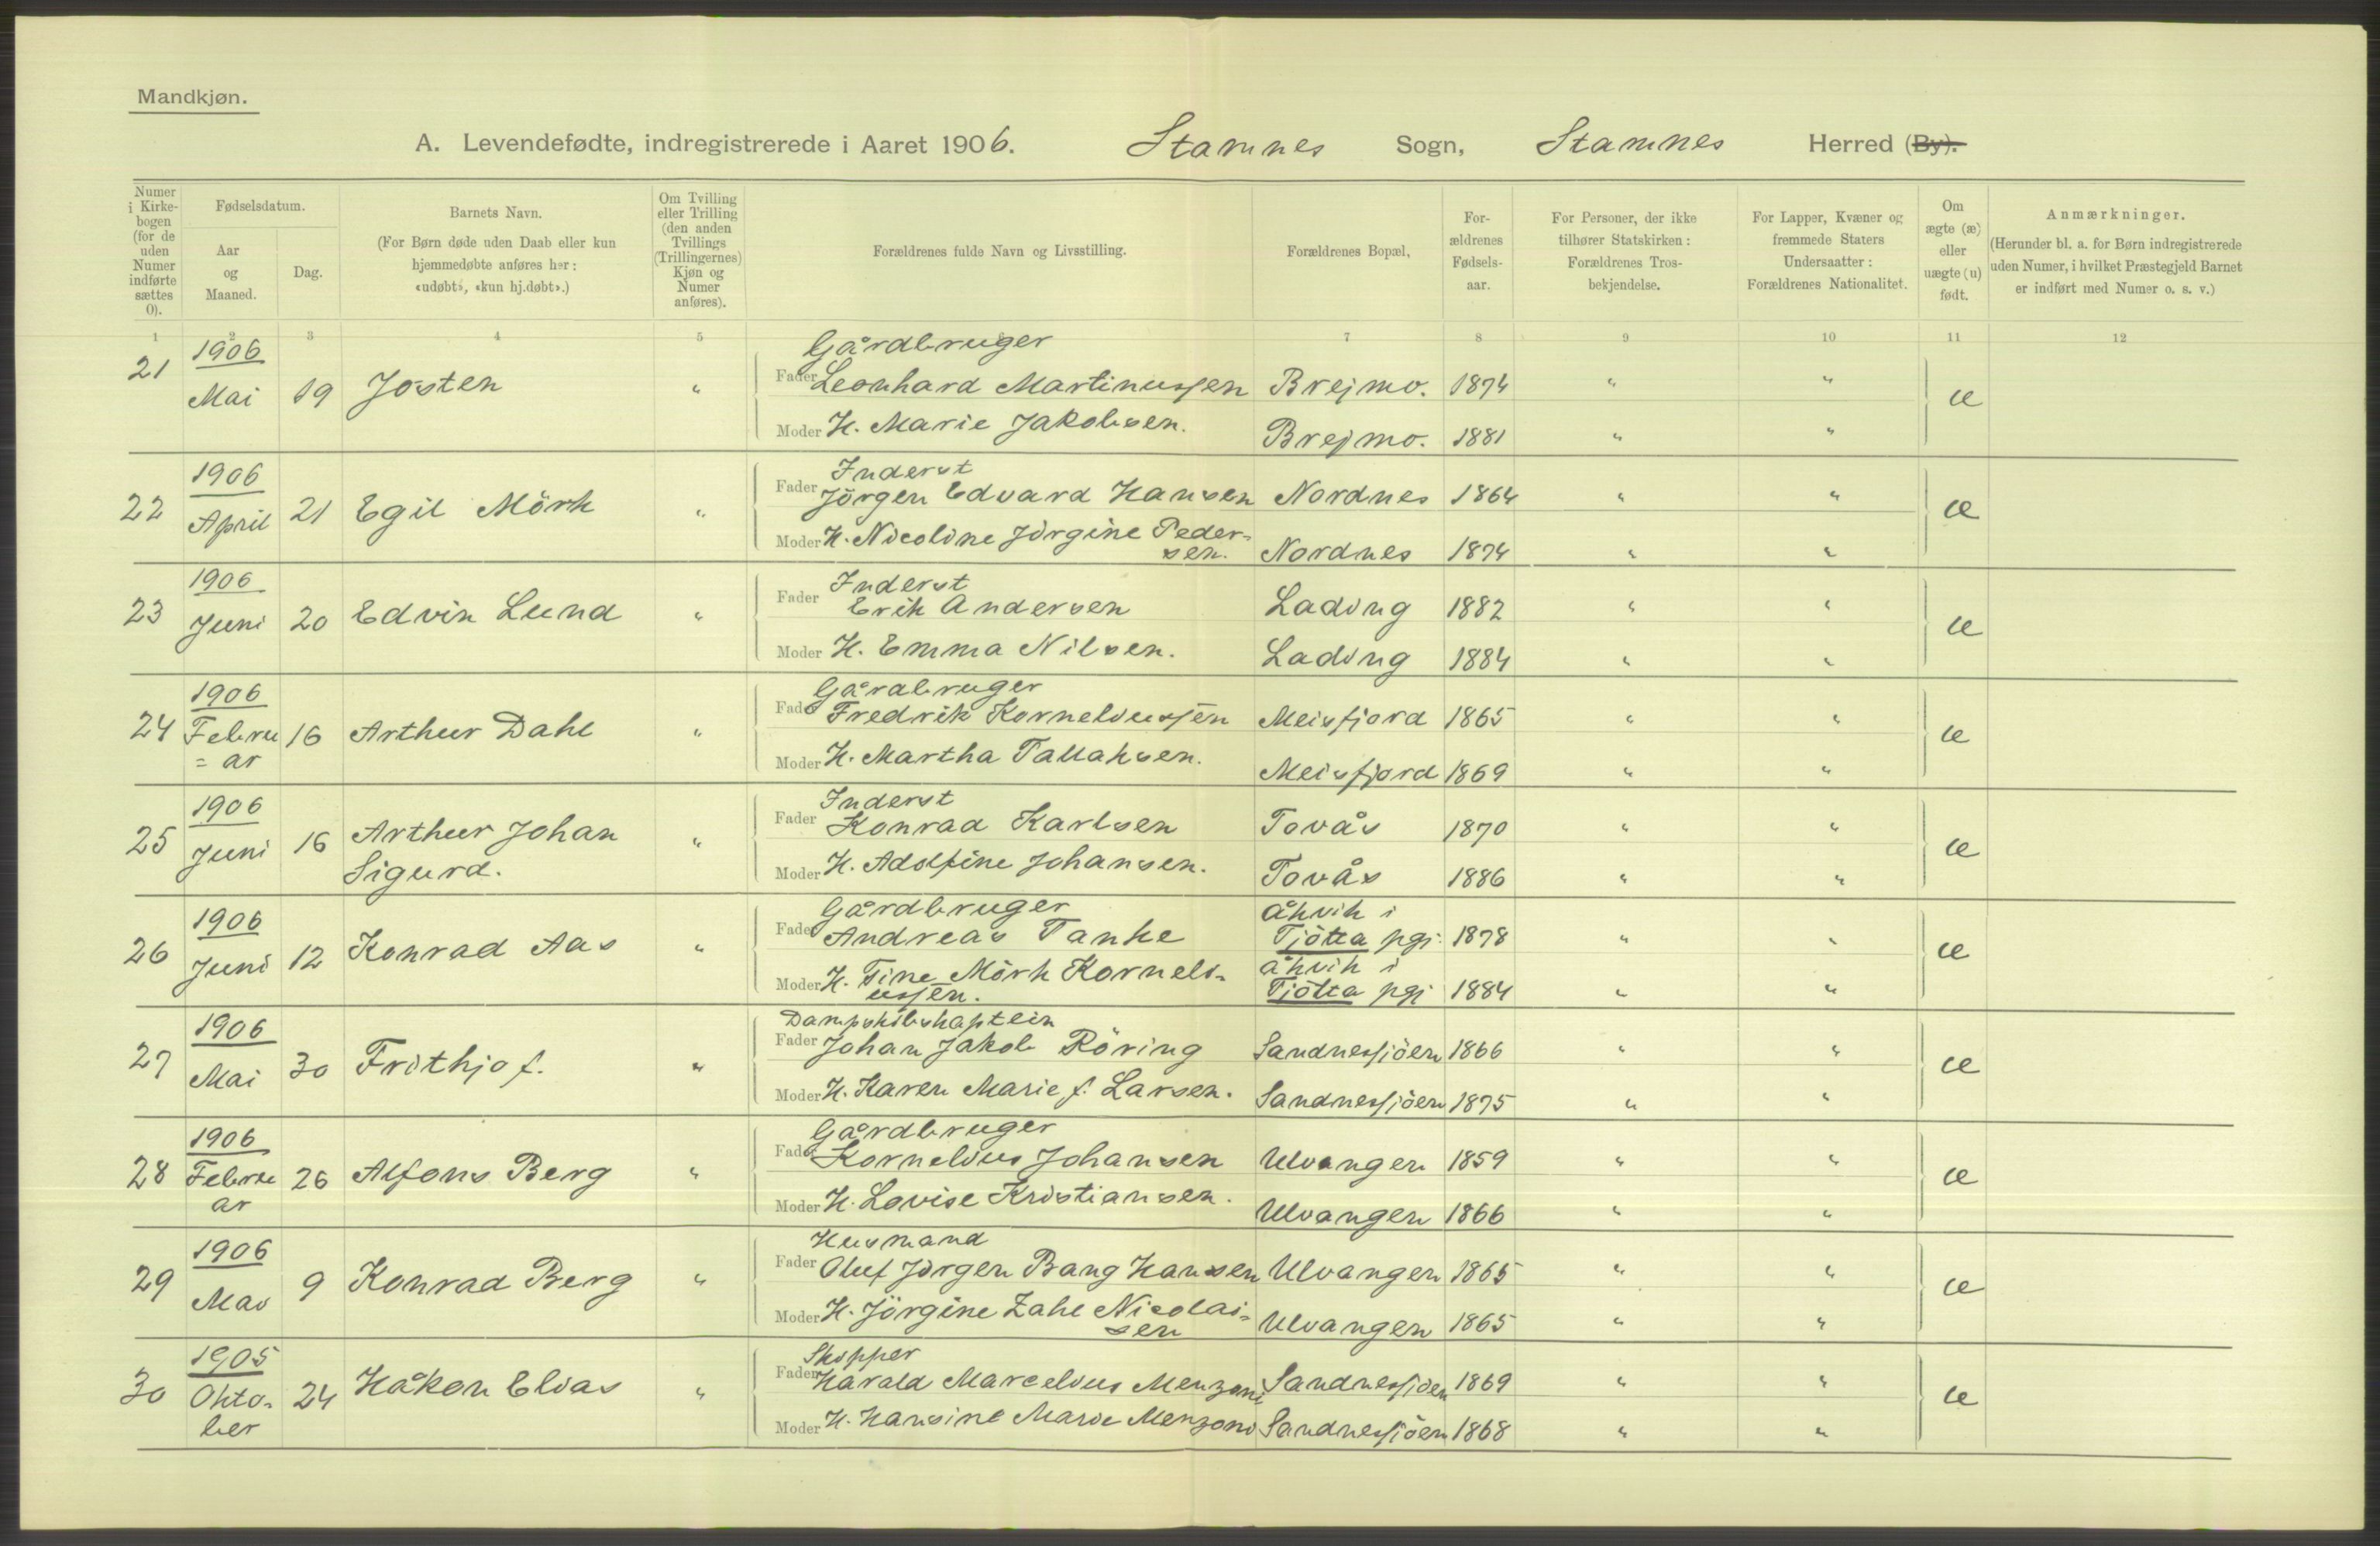 Mandkjøn.
A. Levendefødte, indregistrerede i Aaret 1906. Stamnes Sogn, Stamnes Herred (By).
Numer i Kirkebogen (for de uden Numer indførte sættes 0).
Fødselsdatum.
Aar og Maaned.
Dag.
Barnets Navn.
(For Børn døde uden Daab eller kun hjemmedøbte anføres her: «udøbt», «kun hj.døbt».)
Om Tvilling eller Trilling (den anden Tvillings (Trillingernes) Kjøn og Numer anføres).
Forældrenes fulde Navn og Livsstilling.
Forældrenes Bopæl,
Forældrenes Fødselsaar.
For Personer, der ikke tilhører Statskirken: Forældrenes Trosbekjendelse.
For Lapper, Kvæner og fremmede Staters Undersaatter: Forældrenes Nationalitet.
Om ægte (æ) eller uægte (u) født.
Anmærkninger.
(Herunder bl. a. for Børn indregistrerede uden Numer, i hvilket Præstegjeld Barnet er indført med Numer o. s. v.)
1 2 3 4 5 6 7 8 9 10 11 12
21 1906 Mai 19 Josten "
Gårdbruger
Fader Leonhard Martinussen Brejmo. 1874 " " æ
Moder H. Marie Jakobsen. Brejmo. 1881 " "
22 1906 April 21 Egil Mörk "
Inderst
Fader Jörgen Edvard Hansen Nordnes 1864 " " æ
Moder H. Nicoline Jörgine Peder-
sen. Nordnes 1874 " "
23 1906 Juni 20 Edvin Lund "
Inderst
Fader Erik Andersen Lading 1882 " " æ
Moder H. Emma Nilsen. Lading 1884 " "
24 1906 Febru
=ar 16 Arthur Dahl "
Gårdbruger
Fader Fredrik Korneliussen Meisfjord 1865 " " æ
Moder H. Martha Tallaksen. Meisfjord 1869 " "
25 1906 Juni 16 Arthur Johan
Sigurd. "
Inderst
Fader Konrad Karlsen Tovås 1870 " " æ
Moder H. Adolfine Johansen. Tovås 1886 " "
26 1906 Juni 12 Konrad Aas "
Gårdbruger
Fader Andreas Tanke Åkvik i
Tjötta pgj. 1878 " " æ
Moder H. Tine Mörk Korneli-
ussen. Åkvik i
Tjötta pgj 1884 " "
27 1906 Mai 30 Frithjof. "
Dampskibskaptein
Fader Johan Jakob Röring Sandnessjöen 1866 " " æ
Moder H. Karen Marie f. Larsen. Sandnessjöen 1875 " "
28 1906 Febru
ar 26 Alfons Berg "
Gårdbruger
Fader Kornelius Johansen Ulvangen 1859 " " æ
Moder H. Lovise Kristiansen. Ulvangen 1866 " "
29 1906 Mai 9 Konrad Berg "
Husmand
Fader Oluf Jörgen Bang Hansen Ulvangen 1865 " " æ
Moder H. Jörgine Zahl Nicolai-
sen Ulvangen 1865 " "
30 1905 Okto-
ber 24 Håkon Elias "
Skipper
Fader Harald Marcelius Menzoni Sandnessjöen 1869 " " æ
Moder H. Hansine Marie Menzoni Sandnessjöen 1868 " "